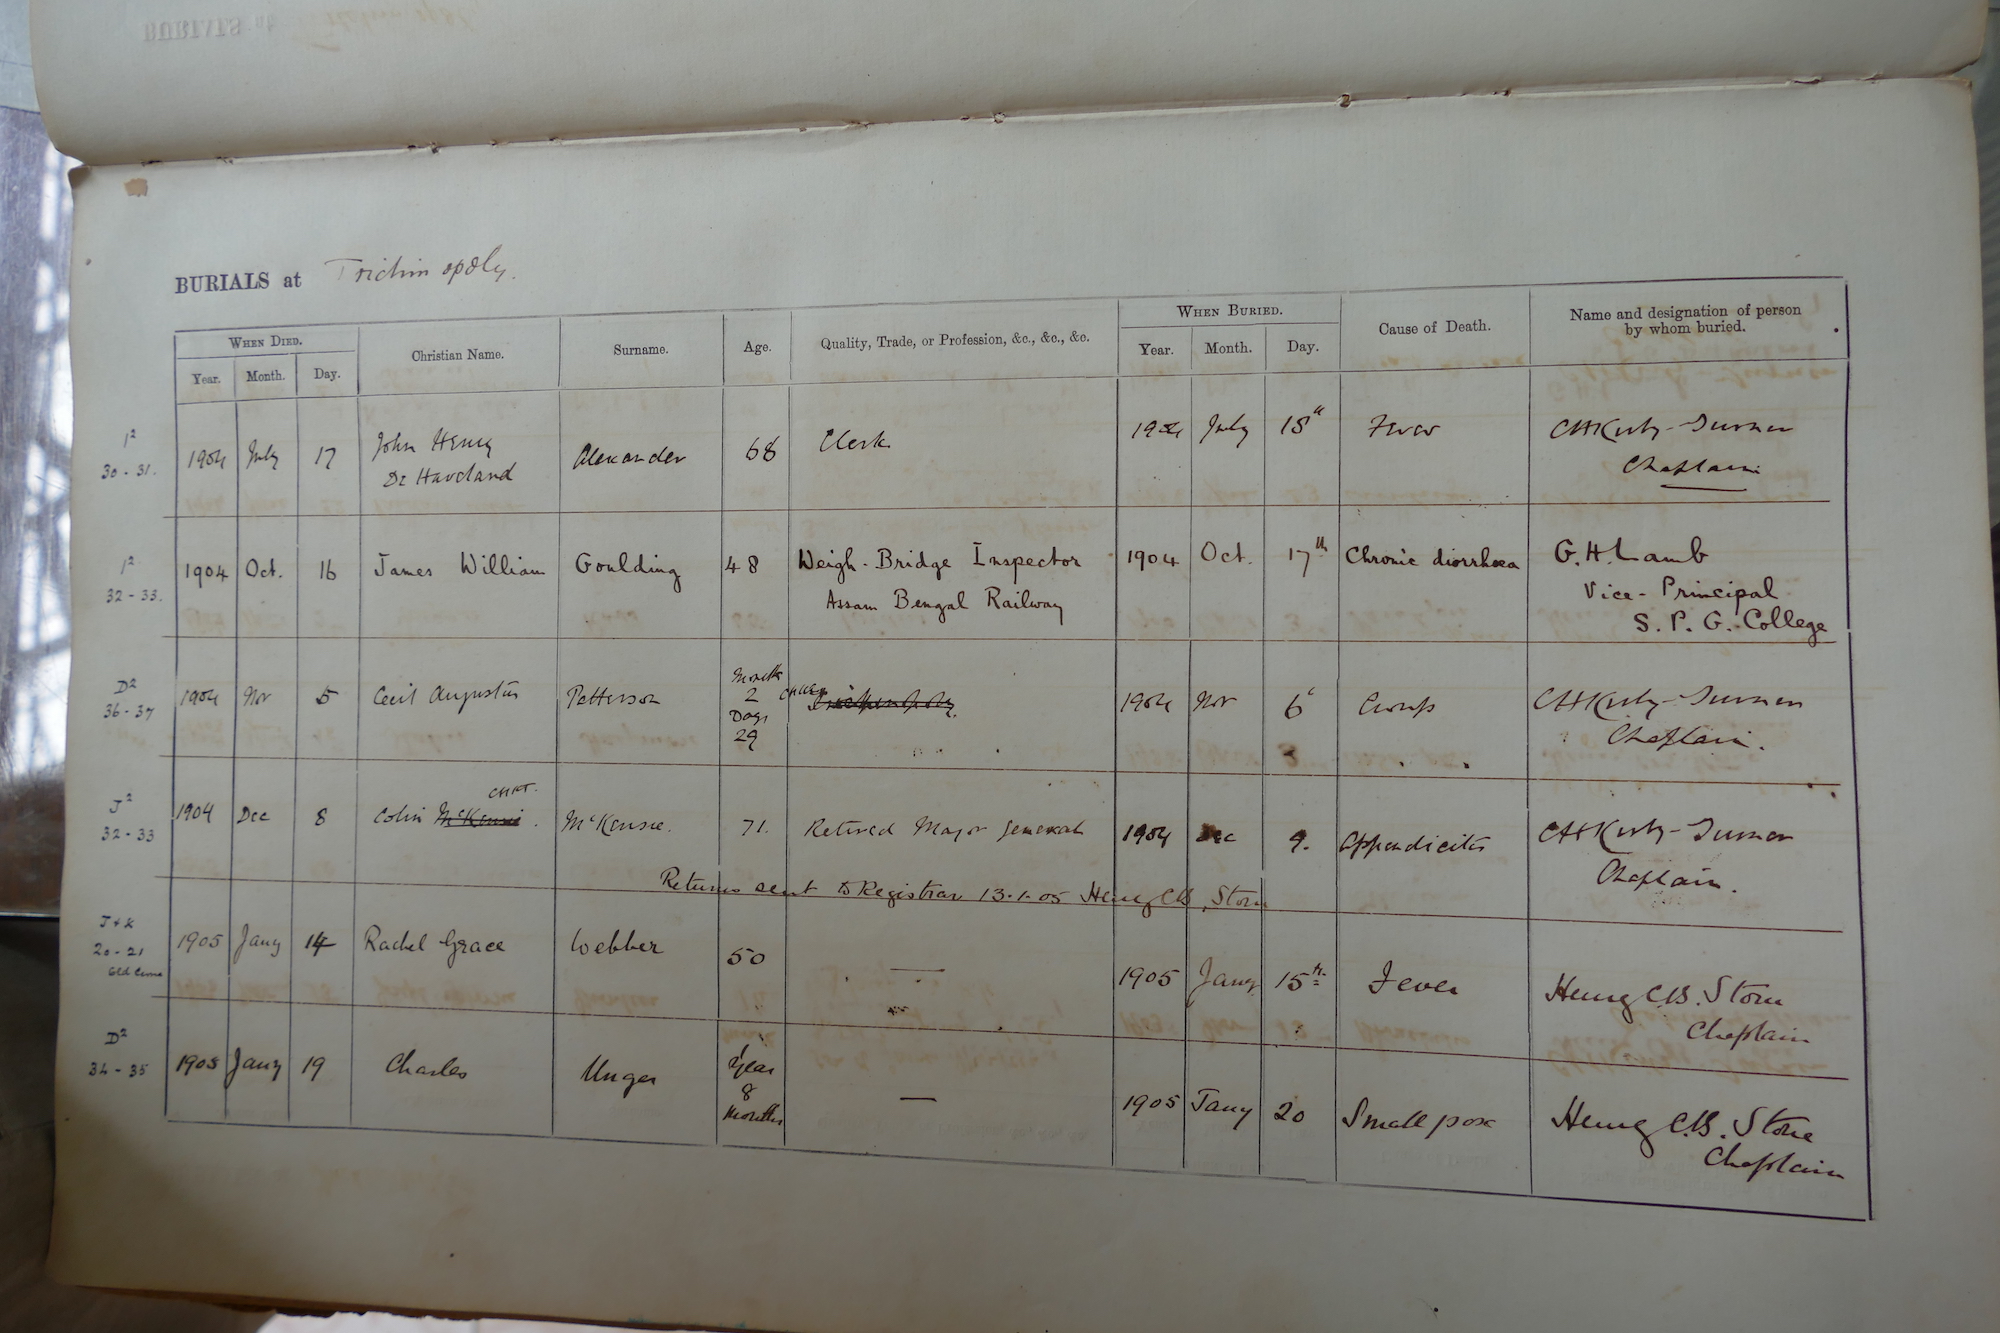 BURIALS at Trichinopoly.
WHEN DIED. Christian Name. Surname. Age. Quality, Trade, or Profession, &c., &c., &c. WHEN BURIED. Cause of Death. Name and designation of person
by whom buried.
Year. Month. Day. Year. Month. Day.
I² 1904 July 17 John Henry Alexander 68 Clerk 1904 July 18th Fever CHKirby-Turner
30 - 31. De Haviland Chaplain
I² 1904 Oct. 16 James William Goulding 48 Weigh-Bridge Inspector 1904 Oct. 17th Chronic diorrhoea G. H. Lamb
32 - 33. Assam Bengal Railway Vice-Principal
S. P. G. College
D² 1904 Nov 5 Cecil Augustus Patterson Months 2 Days 29 CHKT Trichinopoly. 1904 Nov 6 Croup CHKirby-Turner
36 - 37 Chaplain.
CHKT.
J² 1904 Dec 8 Colin McKensie. McKensie. 71. Retired Major General 1904 Dec 9. Appendicitis CHKirby-Turner
32 - 33 Chaplain.
Returns sent to Registrar 13.1.05 Henry C.B. Stone
J+K 1905 Jany 14 Rachel Grace Webber 50 — 1905 Jany 15th Fever Henry C.B. Stone
20 - 21 Chaplain
Old Cem
D² 1905 Jany 19 Charles Unger 1 Year 8 Months — 1905 Jany 20 Small pox Henry C.B. Stone
34 - 35 Chaplain